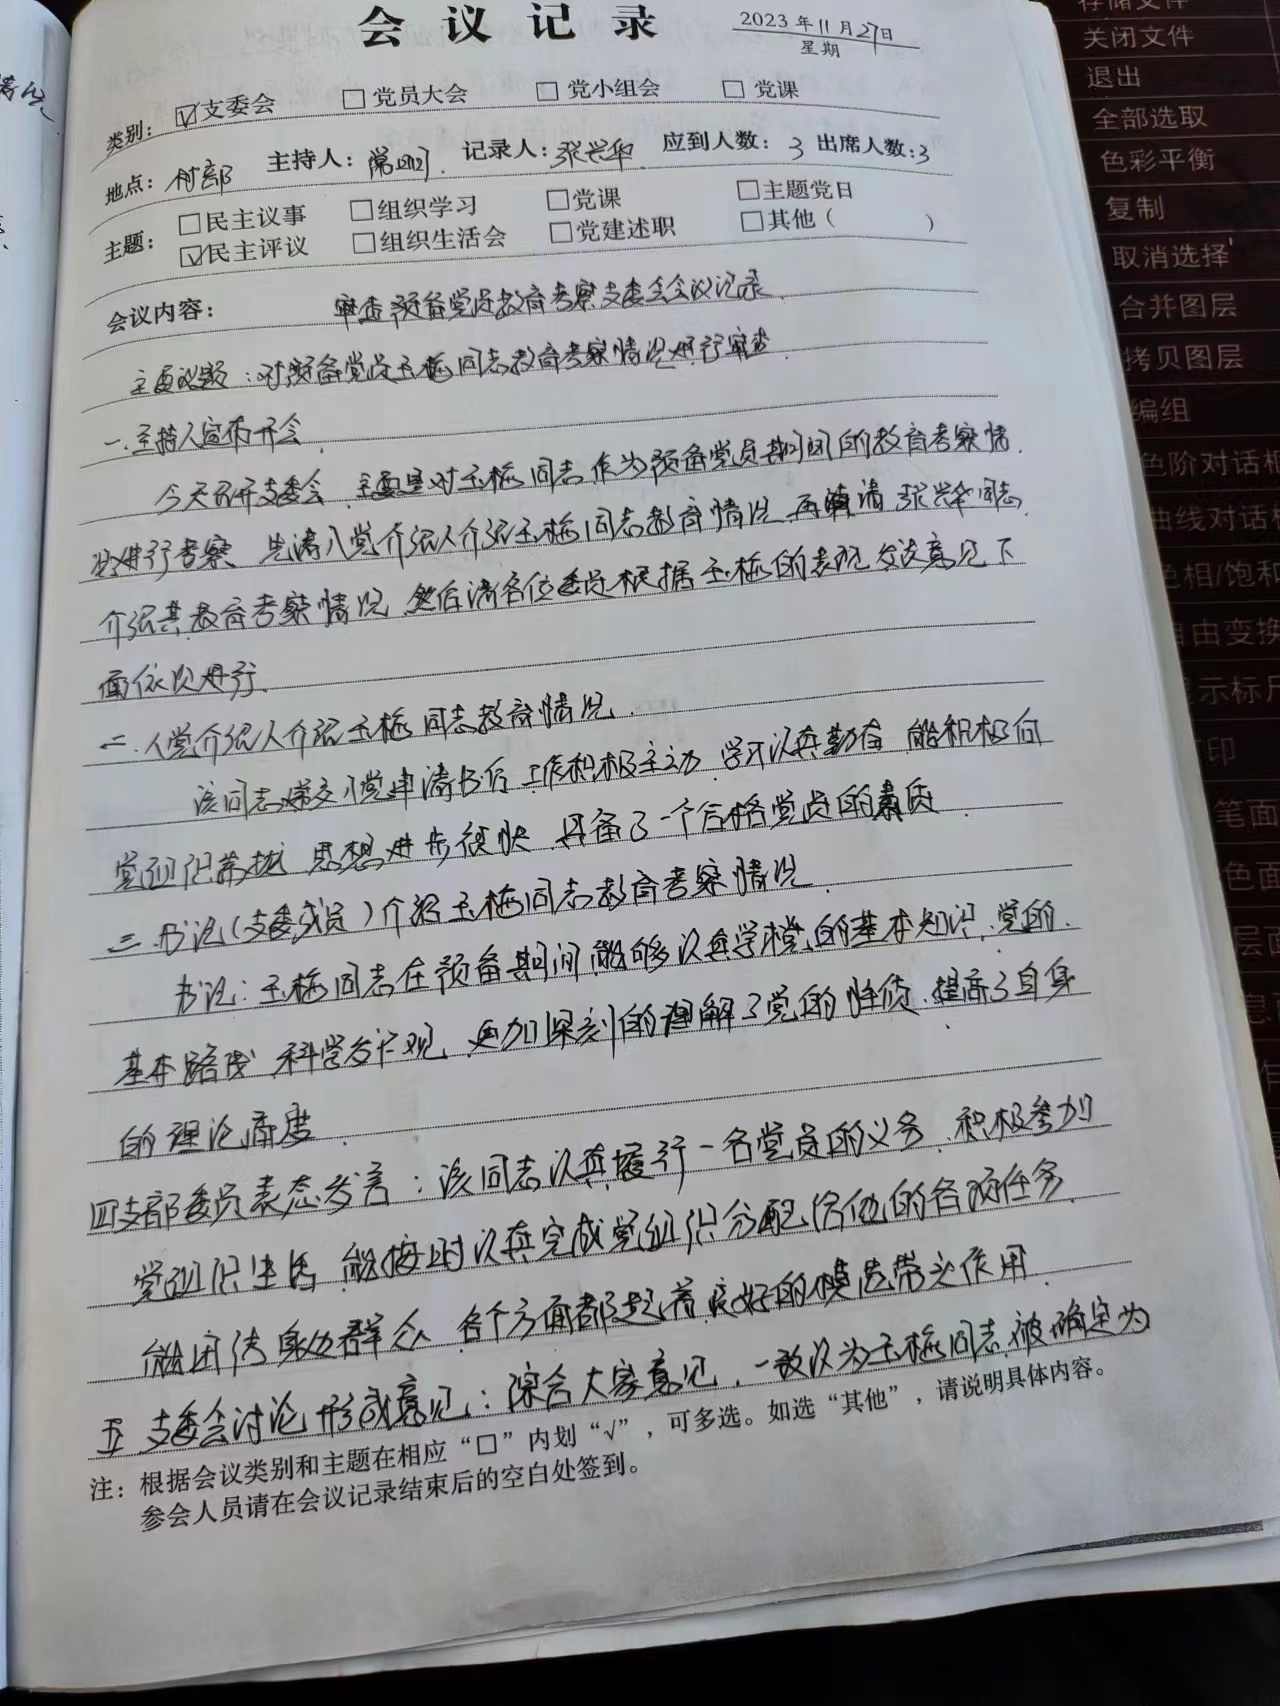 会议记录
2023年11月27日
星期
类别： ☑支委会 □党员大会 □党小组会 □党课
地点：村部 主持人： 记录人：张兴华 应到人数：3 出席人数：3
主题： □民主议事 □组织学习 □党课 □主题党日
☑民主评议 □组织生活会 □党建述职 □其他（ ）
会议内容： 审查预备党员教育考察支委会会议记录
主要议题：对预备党员王梅同志教育考察情况进行审查
一.主持人宣布开会
今天召开支委会，主要是对王梅同志作为预备党员期间的教育考察情
况进行考察，先请入党介绍人介绍王梅同志教育情况，再请张兴华同志
介绍其教育考察情况，然后请各位委员根据王梅的表现发表意见下
面依次进行.
二.入党介绍人介绍王梅同志教育情况.
该同志递交入党申请书后，工作积极主动，学习认真勤奋，能积极向
党组织靠拢，思想进步很快，具备了一个合格党员的素质
三.书记（支委成员）介绍王梅同志教育考察情况.
书记：王梅同志在预备期间，能够认真学习党的基本知识、党的
基本路线、科学发展观，更加深刻的理解了党的性质，提高了自身
的理论高度.
四支部委员表态发言：该同志认真履行一名党员的义务，积极参加
党组织生活，能按时认真完成党组织分配给他的各项任务
能团结身边群众，各个方面都起着良好的模范带头作用.
五 支委会讨论形成意见：综合大家意见，一致认为王梅同志被确定为
注：根据会议类别和主题在相应“□”内划“√”，可多选。如选“其他”，请说明具体内容。
参会人员请在会议记录结束后的空白处签到。
存储文件
关闭文件
退出
全部选取
色彩平衡
复制
取消选择
合并图层
拷贝图层
编组
色阶对话框
曲线对话框
色相/饱和
自由变换
显示标尺
打印
笔面
色面
层面